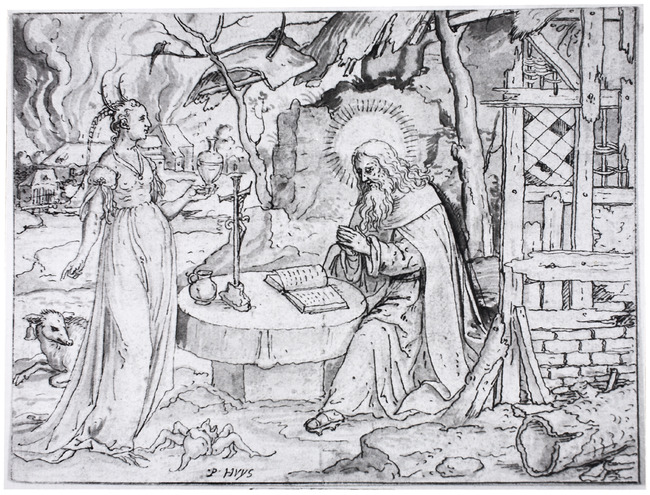 P HVYS